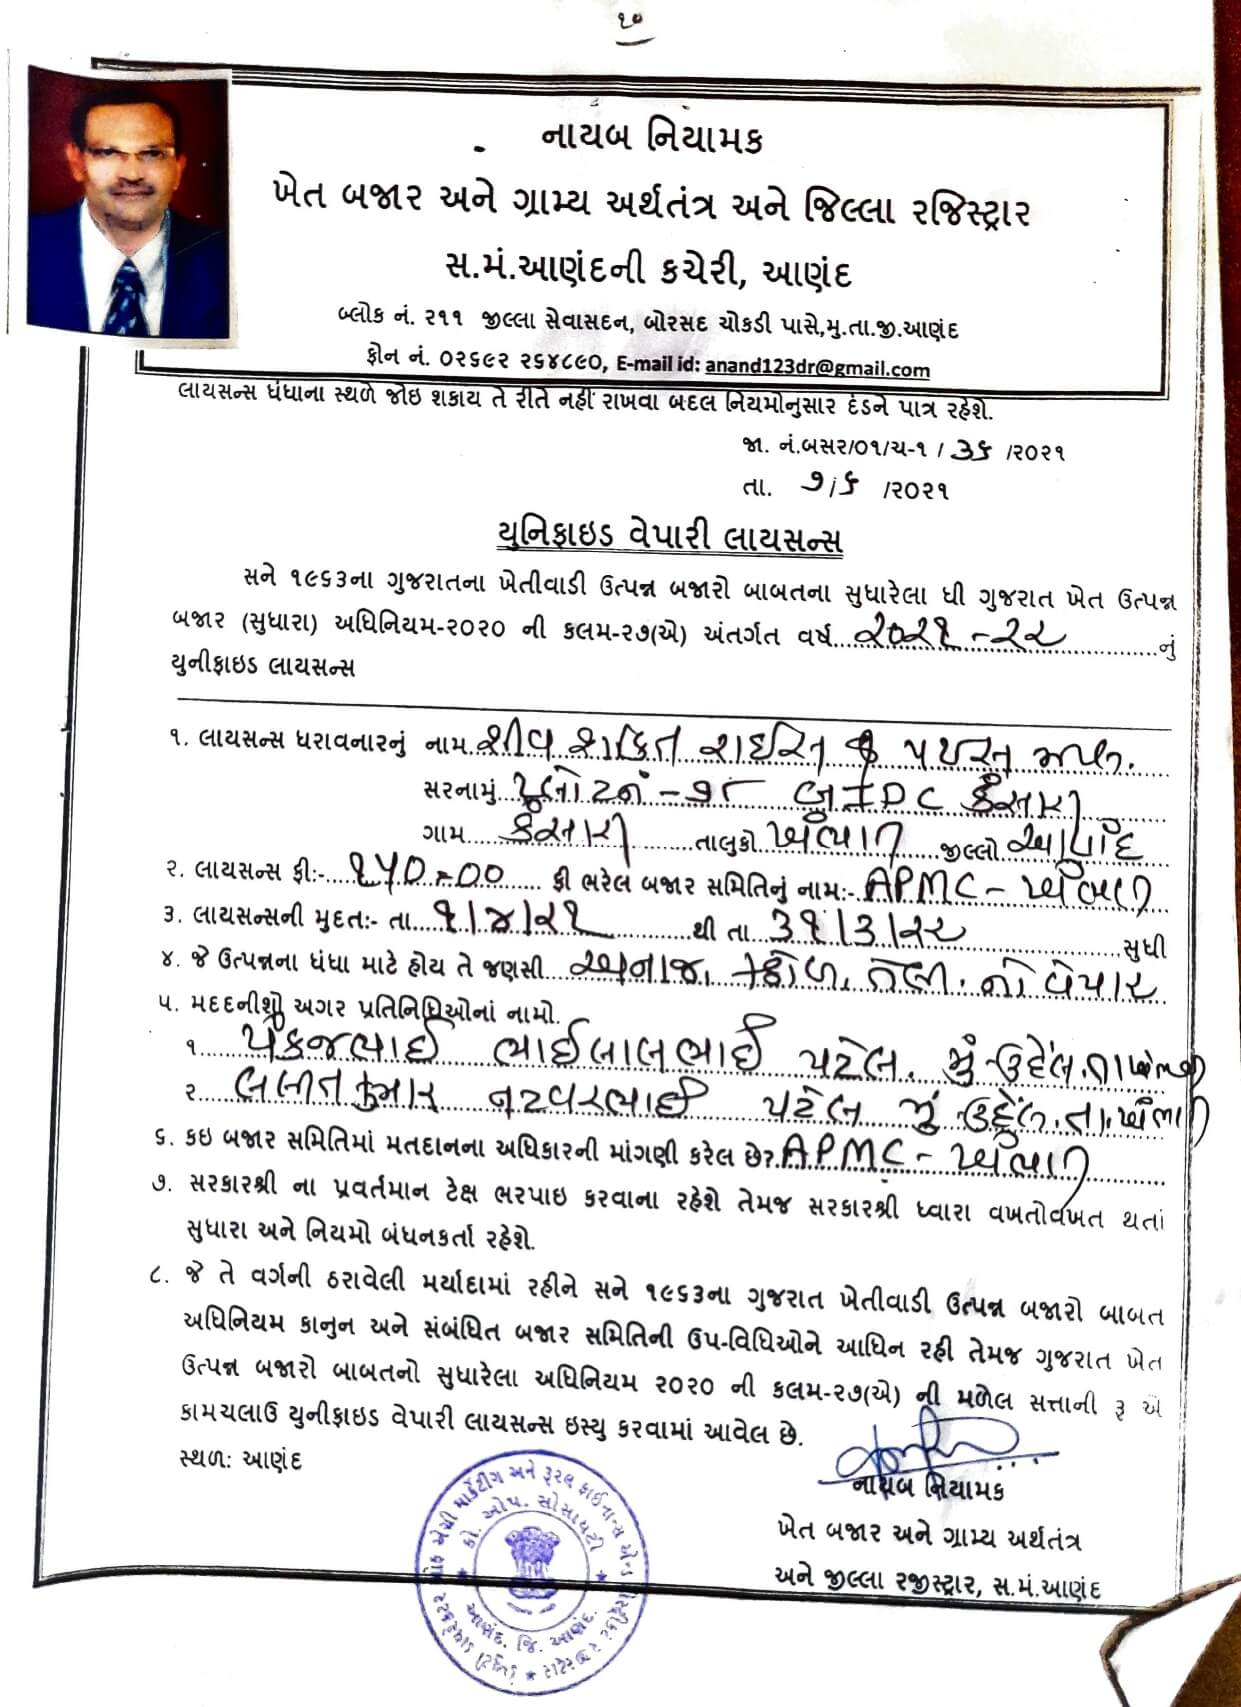 ૧૦
નાયબ નિયામક
ખેત બજાર અને ગ્રામ્ય અર્થતંત્ર અને જિલ્લા રજિસ્ટ્રાર
સ.મં.આણંદની કચેરી, આણંદ
બ્લોક નં. ૨૧૧ જીલ્લા સેવાસદન, બોરસદ ચોકડી પાસે,મુ.તા.જી.આણંદ
ફોન નં. ૦૨૬૯૨ ૨૬૪૮૯૦, E-mail id: anand123dr@gmail.com
લાયસન્સ ધંધાના સ્થળે જોઇ શકાય તે રીતે નહીં રાખવા બદલ નિયમોનુસાર દંડને પાત્ર રહેશે.
જા. નં.બસર/૦૧/ચ-૧ / ૩૬ /૨૦૨૧
તા. ૭/૬ /૨૦૨૧
યુનિફાઇડ વેપારી લાયસન્સ
સને ૧૯૬૩ના ગુજરાતના ખેતીવાડી ઉત્પન્ન બજારો બાબતના સુધારેલા ધી ગુજરાત ખેત ઉત્પન્ન
બજાર (સુધારા) અધિનિયમ-૨૦૨૦ ની કલમ-૨૭(એ) અંતર્ગત વર્ષ ૨૦૨૧-૨૨ નું
યુનીફાઇડ લાયસન્સ
૧. લાયસન્સ ધરાવનારનું નામ શીવ શકિત રાઇસ
સરનામું પ્લોટનં - GIDC કંસારી
ગામ કંસારી તાલુકો ખંભાત જીલ્લો આણંદ
૨. લાયસન્સ ફી:- ૧૫૦=૦૦ ફી ભરેલ બજાર સમિતિનું નામ:- APMC - ખંભાત
૩. લાયસન્સની મુદત:- તા ૧/૪/૨૧ થી તા ૩૧/૩/૨૨ સુધી
૪. જે ઉત્પન્નના ધંધા માટે હોય તે જણસી અનાજ, કઠોળ, તેલી. નો વેપાર
૫. મદદનીશો અગર પ્રતિનિધિઓનાં નામો.
૧ પંકજભાઈ ભાઈલાલભાઈ પટેલ. મું ઉંદેલ.તા ખંભાત
૨ લલીતકુમાર નટવરભાઈ પટેલ મું ઉંદેલ. તા. ખંભાત
૬. કઇ બજાર સમિતિમાં મતદાનના અધિકારની માંગણી કરેલ છે? APMC - ખંભાત
૭. સરકારશ્રી ના પ્રવર્તમાન ટેક્ષ ભરપાઇ કરવાના રહેશે તેમજ સરકારશ્રી ધ્વારા વખતોવખત થતાં
સુધારા અને નિયમો બંધનકર્તા રહેશે.
૮. જે તે વર્ગની ઠરાવેલી મર્યાદામાં રહીને સને ૧૯૬૩ના ગુજરાત ખેતીવાડી ઉત્પન્ન બજારો બાબત
અધિનિયમ કાનુન અને સંબંધિત બજાર સમિતિની ઉપ-વિધિઓને આધિન રહી તેમજ ગુજરાત ખેત
ઉત્પન્ન બજારો બાબતનો સુધારેલા અધિનિયમ ૨૦૨૦ ની કલમ-૨૭(એ) ની મળેલ સત્તાની રૂ એ
કામચલાઉ યુનીફાઇડ વેપારી લાયસન્સ ઇસ્યુ કરવામાં આવેલ છે.
સ્થળ: આણંદ
નાયબ નિયામક
ખેત બજાર અને ગ્રામ્ય અર્થતંત્ર
અને જીલ્લા રજીસ્ટ્રાર, સ.મં.આણંદ
એગ્રી માર્કેટીંગ અને રૂરલ ફાઈનાન્સ એન્ડ
કો. ઓપ. સોસાયટી
આણંદ. જિ. આણંદ.